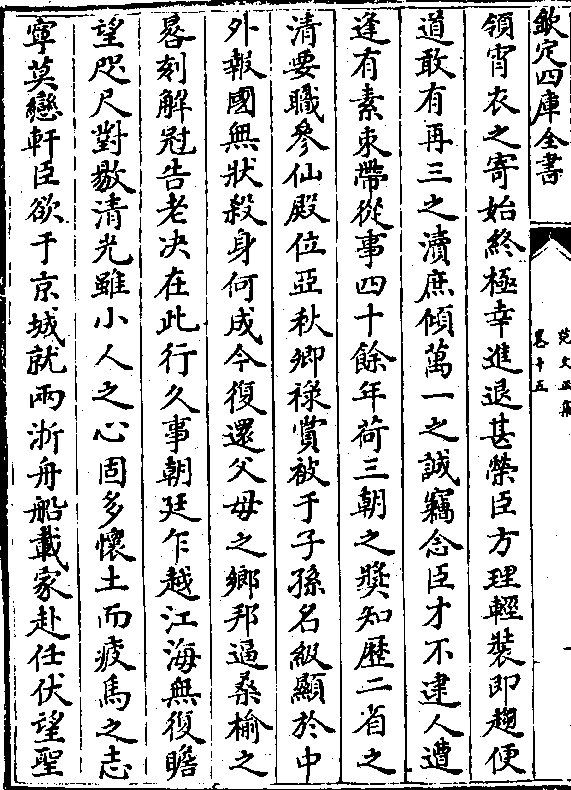 欽定四庫全書
范文正集
卷十五
領宵衣之寄始終極幸進退甚榮臣方理輕裝即趨便
道敢有再三之瀆庶傾萬一之誠竊念臣才不逮人遭
逢有素束帶從事四十餘年荷三朝之奬知歷二省之
清要職參仙殿位亞秋卿祿賞被于子孫名級顯於中
外報國無狀殺身何成今復還父母之鄉邦逼桑榆之
晷刻解冠告老決在此行久事朝廷乍越江海無復瞻
望咫尺對敭清光雖小人之心固多懷土而疲馬之志
寧莫戀軒臣欲于京城就兩浙舟船載家赴任伏望聖